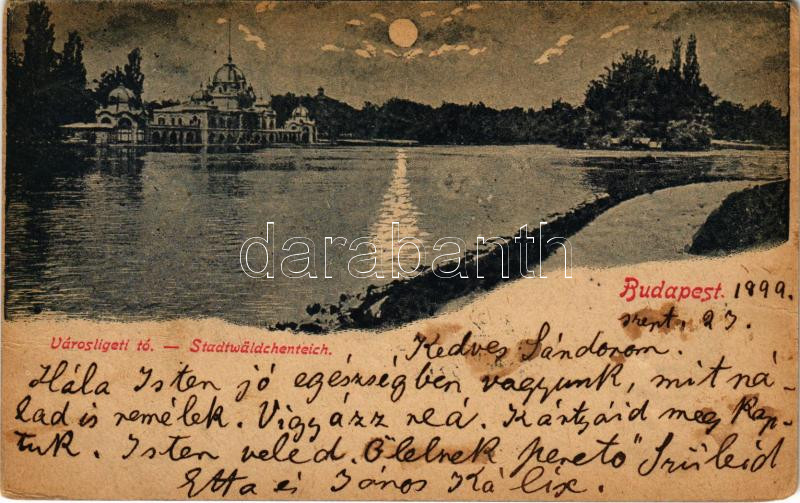 darabanth.com
Budapest. 1899.
szept. 27.
Városligeti tó. — Stadtwäldchenteich.
Kedves Sándorom.
Hála Isten jó egészségben vagyunk, mit ná-
lad is remélek. Vigyázz reá. Kártyáid meg kap-
tuk. Isten veled. Ölelnek szerető Szüleid
Etta és János Kálix.